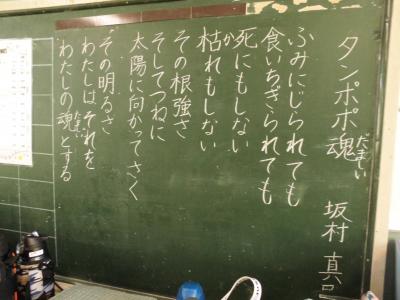 タンポポ魂 だましい
坂村 真
ふみにじられても
食いちぎられても
死にもしない
枯れもしない か
その根強さ
そしてつねに
太陽に向かってさく
その明るさ
わたしはそれを
わたしの魂とする たましい